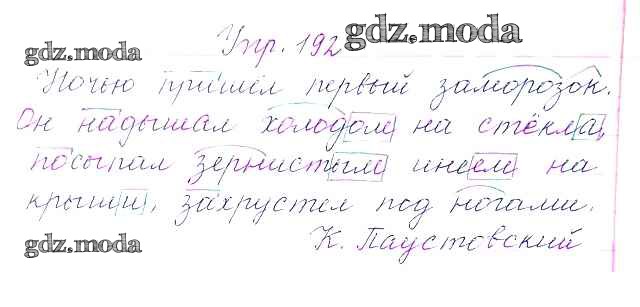 Упр. 192 gdz.moda
gdz.moda
Ночью пришёл первый заморозок.
Он надышал холодом на стёкла,
посыпал зернистым инеем на
крыши, захрустел под ногами.
К. Паустовский
gdz.moda